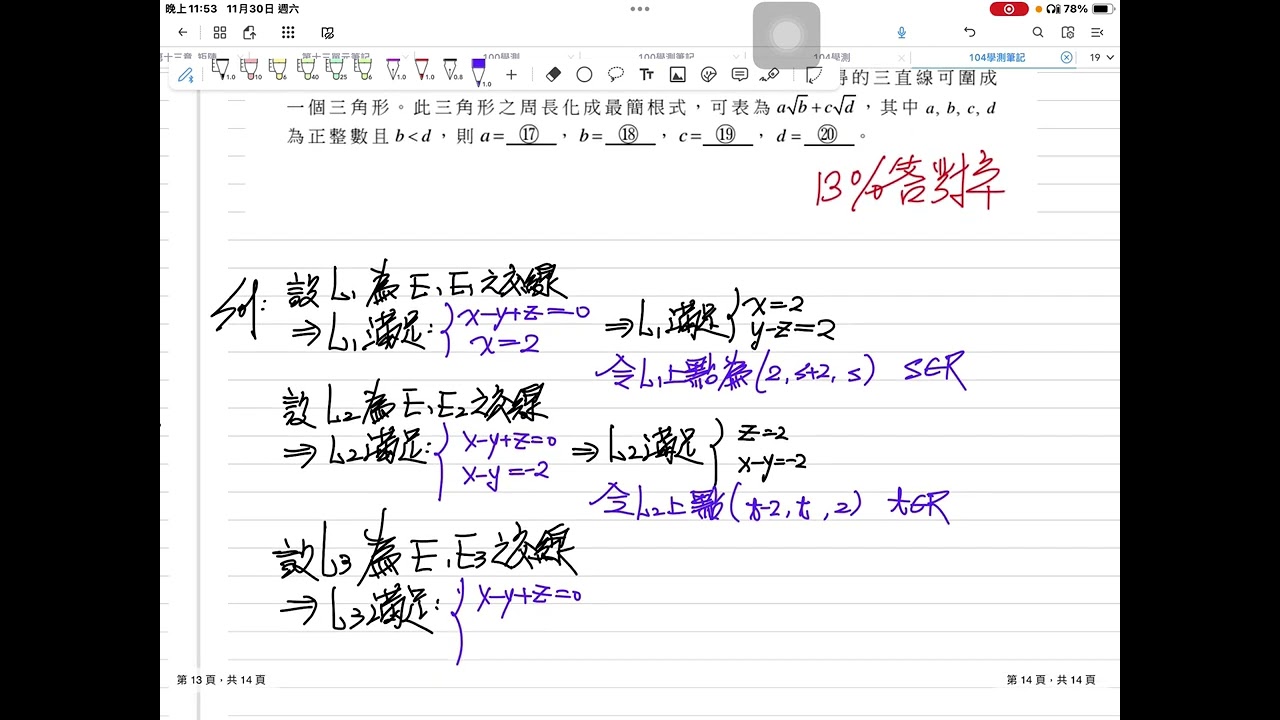 晚上11:53 11月30日 週六
78%
第十三單元筆記 100學測 100學測筆記 104學測 104學測筆記 19
1.0 1.0 1.0 0.8 1.0
得的三直線可圍成
一個三角形。此三角形之周長化成最簡根式,可表為 a√b+c√d,其中 a, b, c, d
為正整數且 b<d,則 a= ⑰ ,b= ⑱ ,c= ⑲ ,d= ⑳ 。
13%答對率
sol: 設 L₁ 為 E, E₁ 之交線
⇒ L₁滿足: { x-y+z=0
x=2
⇒ L₁滿足 { x=2
y-z=2
令L₁上點為(2, s+2, s) s∈R
設 L₂ 為 E, E₂ 之交線
⇒ L₂滿足: { x-y+z=0
x-y=-2
⇒ L₂滿足 { z=2
x-y=-2
令L₂上點(t-2, t, 2) t∈R
設 L₃ 為 E, E₃ 之交線
⇒ L₃滿足: { x-y+z=0
第 13 頁,共 14 頁
第 14 頁,共 14 頁